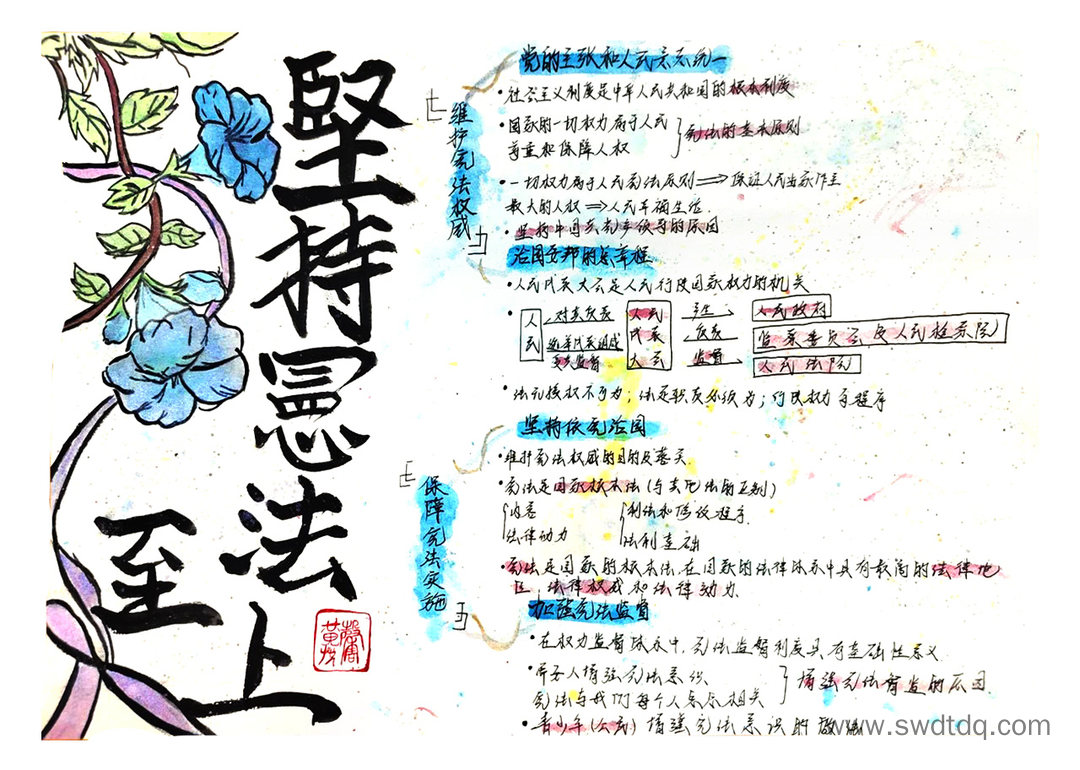 堅持憲法
至上
维护宪法权威
党的主张和人民意志统一
•社会主义制度是中华人民共和国的根本制度
•国家的一切权力属于人民
尊重和保障人权
宪法的基本原则
•一切权力属于人民宪法原则⟹保证人民当家作主
最大的人权⟹人民幸福生活.
•坚持中国共产党领导的原因
治国安邦的总章程
•人民代表大会是人民行使国家权力的机关
人民
对其负责
选举代表组成
受其监督
人民代表大会
产生
负责
监督
人民政府
监察委员会及人民检察院
人民法院
•法无授权不可为；法定职责必须为；行使权力守程序
保障宪法实施
坚持依宪治国
•维护宪法权威的目的及意义.
•宪法是国家根本法(与其他法的区别)
内容
法律效力
制定和修改程序.
法制基础
•宪法是国家的根本法,在国家的法律体系中具有最高的法律地
位、法律权威和法律效力.
加强宪法监督
•在权力监督体系中,宪法监督制度具有基础性意义.
•每个人增强宪法意识
宪法与我们每个人息息相关
增强宪法意识的原因.
•青少年(公民)增强宪法意识的做法
www.swdtdq.com